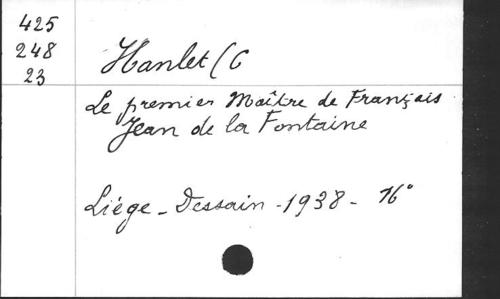 425
248
23
Hanlet (C
Le premier Maître de Français
Jean de la Fontaine
Liége - Dessain - 1938 - 16°